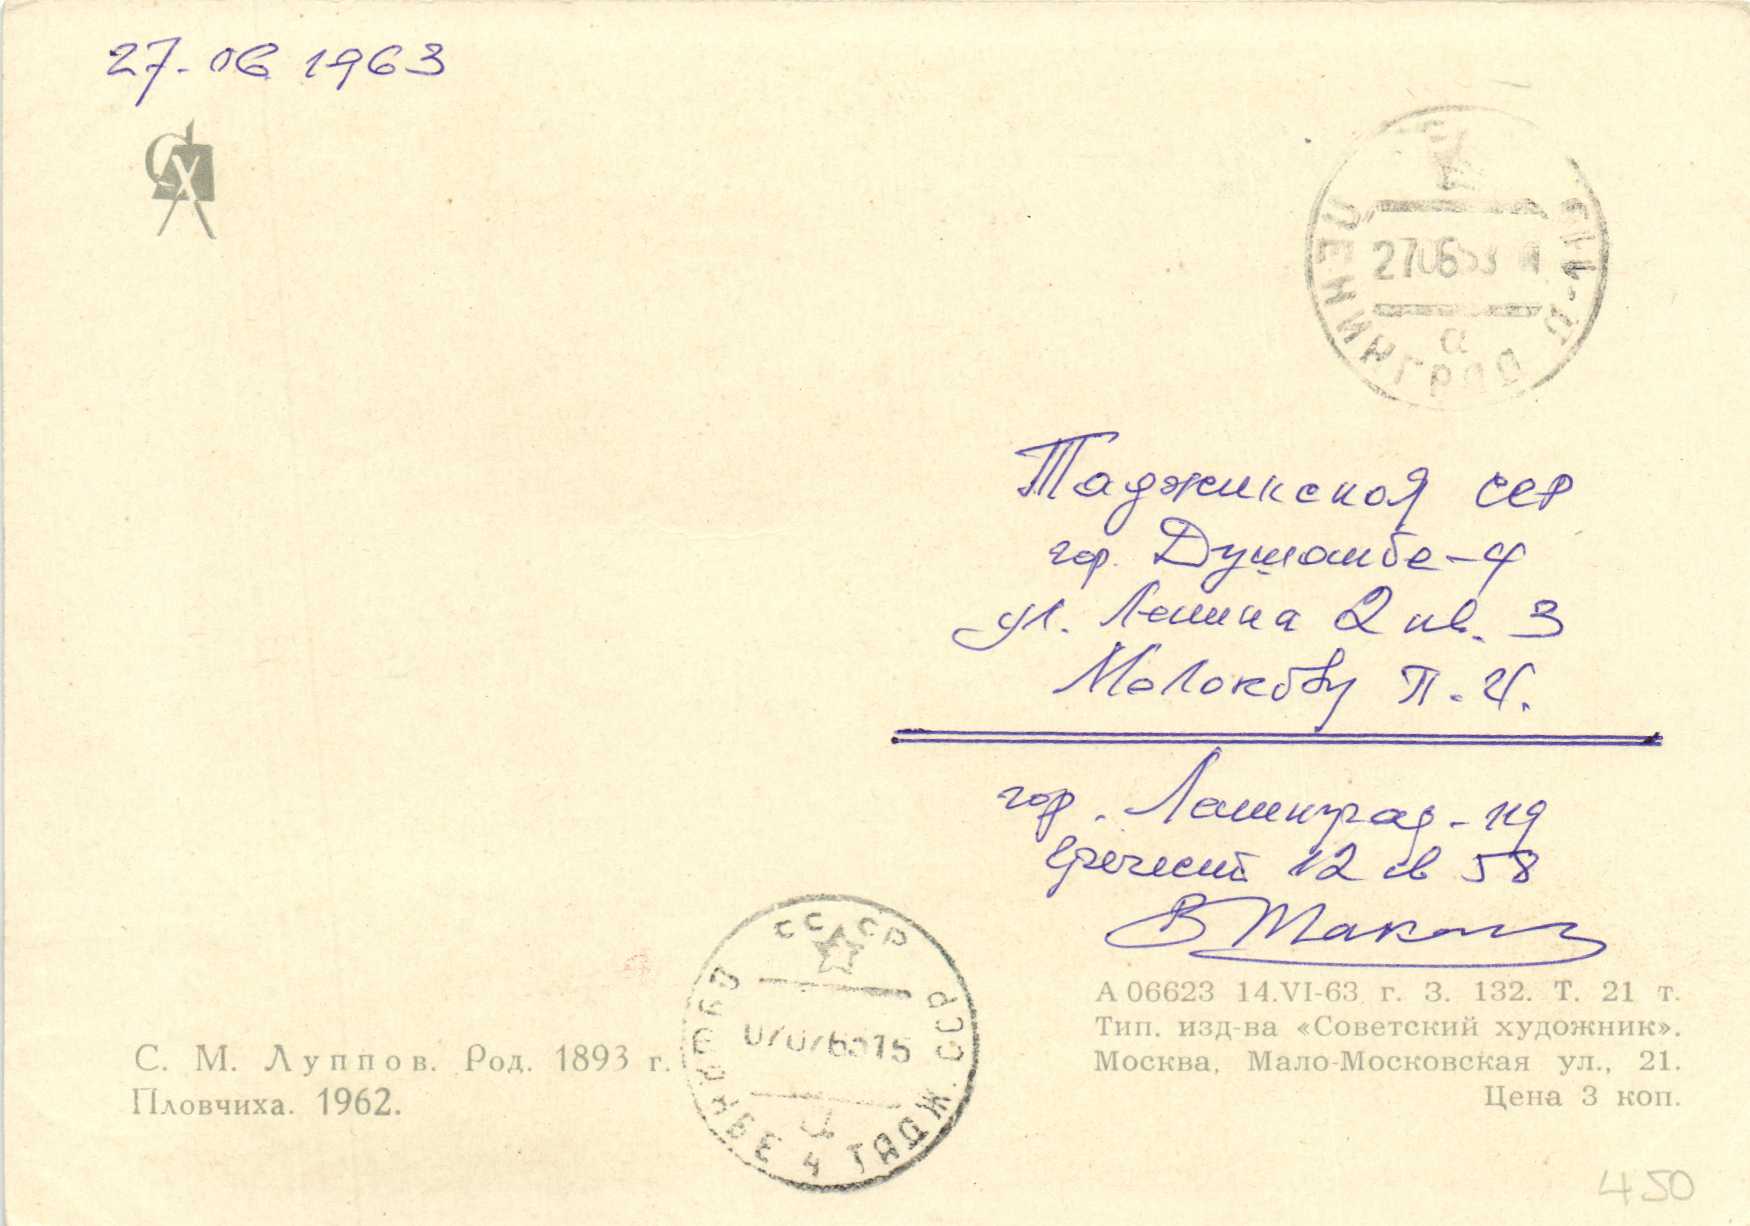 27.06 1963
ЛЕНИНГРАД Д-119
270663
а
Таджикской ССР
гор. Душанбе-4
ул. Ленина 2 кв. 3
Молокову П.И.
гор. Ленинград-119
Греческий 12 кв 58
СССР
ДУШАНБЕ 4 ТАДЖ. ССР
07076315
С. М. Луппов. Род. 1893 г.
Пловчиха. 1962.
А 06623 14.VI-63 г. З. 132. Т. 21 т.
Тип. изд-ва «Советский художник».
Москва, Мало-Московская ул., 21.
Цена 3 коп.
450